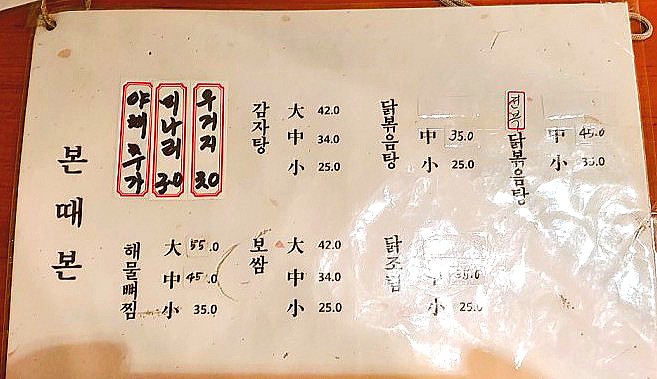 본때본
야채 추가
미나리 3.0
우거지 3.0
감자탕
大 42.0
中 34.0
小 25.0
닭볶음탕
中 35.0
小 25.0
전복 닭볶음탕
中 45.0
小 35.0
해물뼈찜
大 55.0
中 45.0
小 35.0
보쌈
大 42.0
中 34.0
小 25.0
닭조림
中 35.0
小 25.0